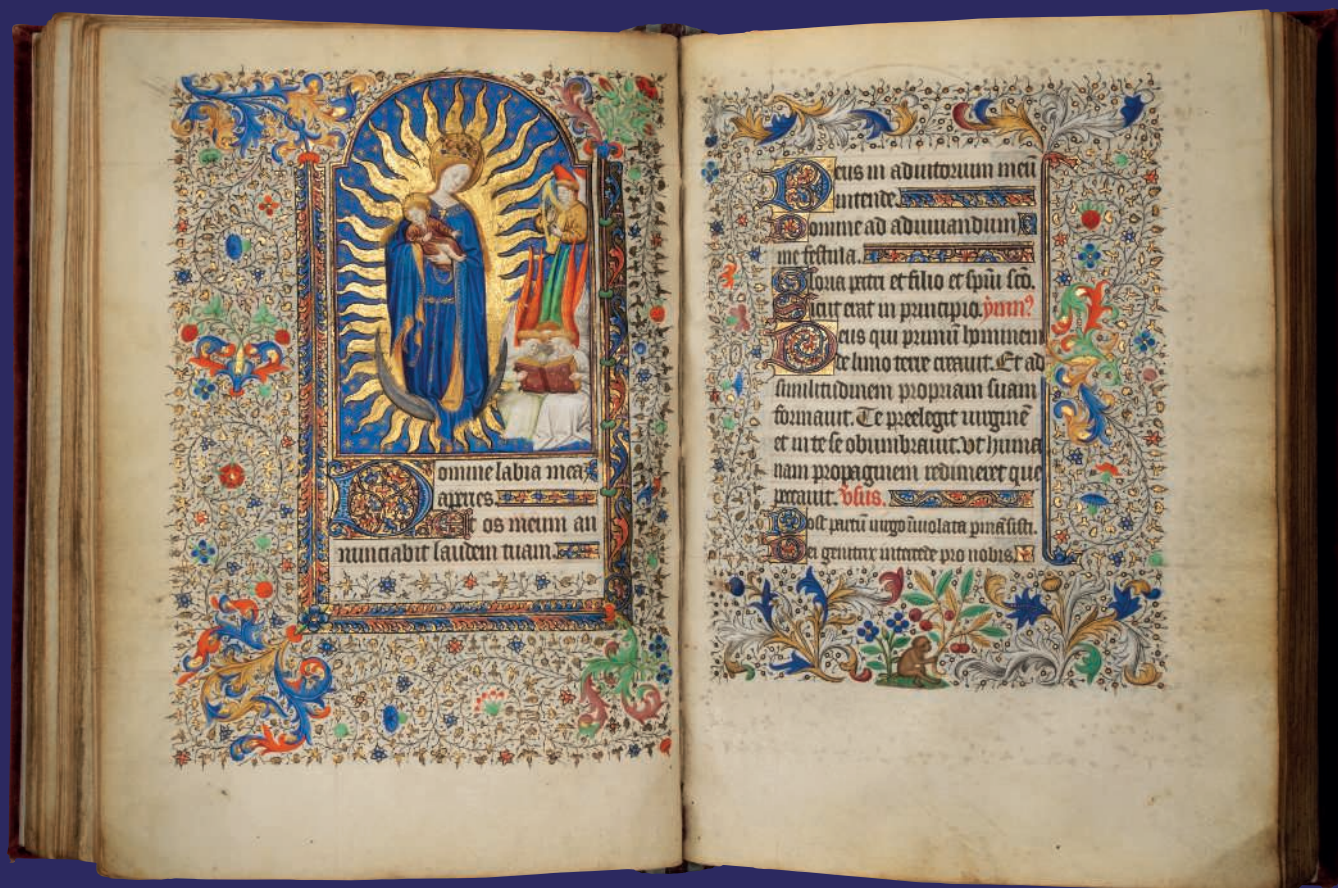 Domine labia mea
aperies.
Et os meum an
nunciabit laudem tuam.
Deus in adiutorium meū
intende.
Domine ad adiuuandum
me festina.
Gloria patri et filio et spūi sc̄o.
Sicut erat in principio. ymn⁹
Deus qui primū hominem
de limo terre creauit. Et ad
similitudinem propriam suam
formauit. Te preelegit uirginē
et in te se obumbrauit. vt huma
nam propaginem redimeret que
peccauit. v̄sus.
Post partū uirgo īuiolata pmāsisti.
Dei genitrix intercede pro nobis.